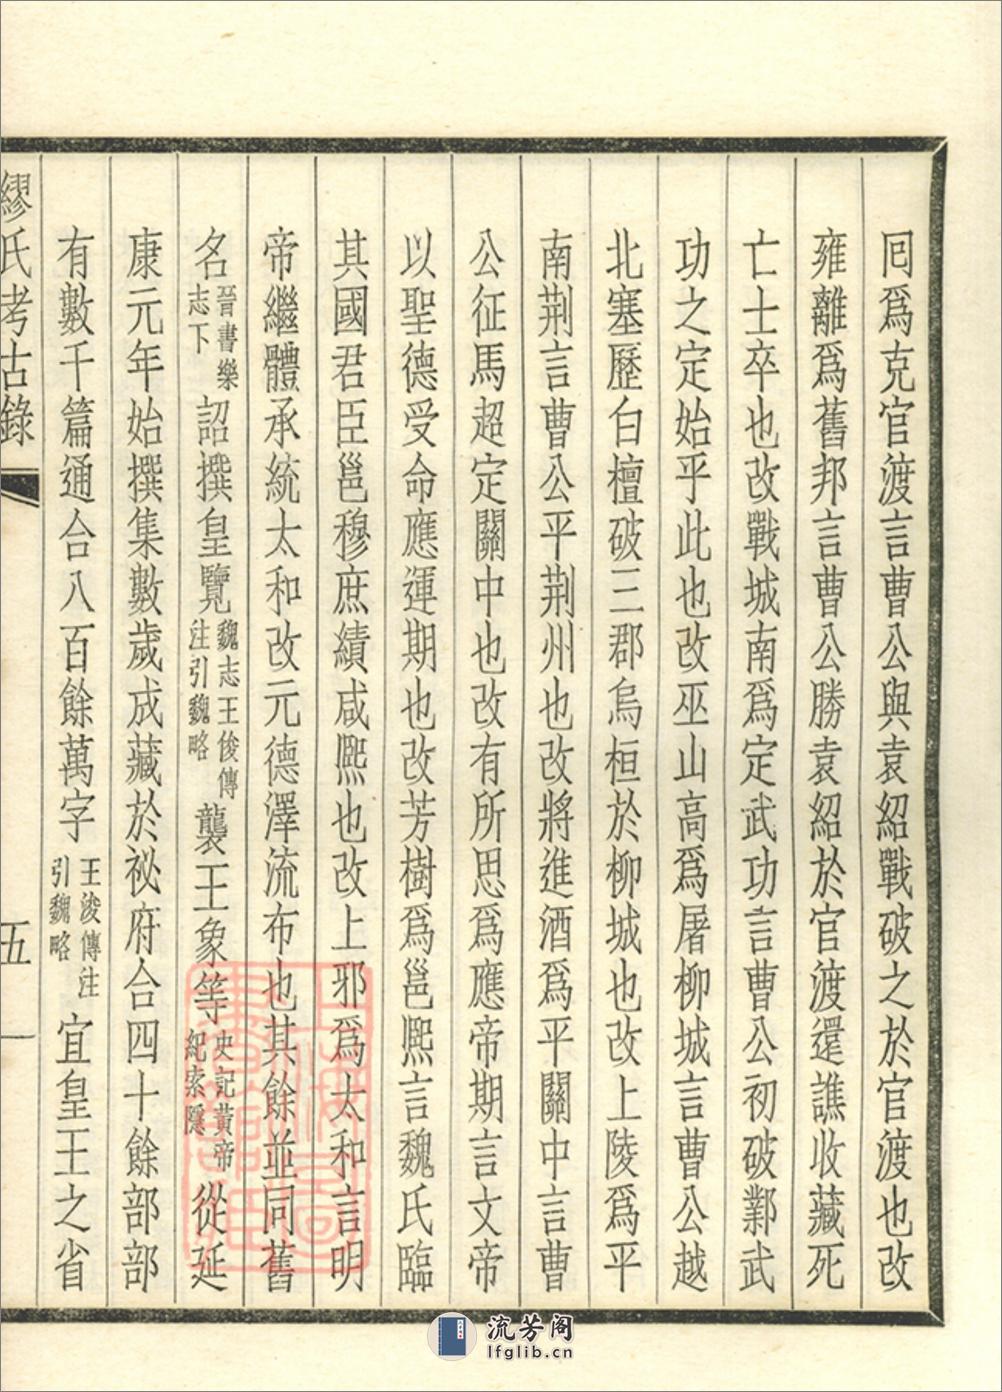 囘爲克官渡言曹公與袁紹戰破之於官渡也改
雍離爲舊邦言曹公勝袁紹於官渡還譙收藏死
亡士卒也改戰城南爲定武功言曹公初破鄴武
功之定始乎此也改巫山高爲屠柳城言曹公越
北塞歷白檀破三郡烏桓於柳城也改上陵爲平
南荆言曹公平荆州也改將進酒爲平關中言曹
公征馬超定關中也改有所思爲應帝期言文帝
以聖德受命應運期也改芳樹爲邕熙言魏氏臨
其國君臣邕穆庶績咸熙也改上邪爲太和言明
帝繼體承統太和改元德澤流布也其餘並同舊
名晉書樂志下詔撰皇覽魏志王俊傳注引魏略襲王象等史記黃帝紀索隱從延
康元年始撰集數歲成藏於祕府合四十餘部部
有數千篇通合八百餘萬字王浚傳注引魏略宜皇王之省
繆氏考古錄 五
流芳阁
lfglib.cn